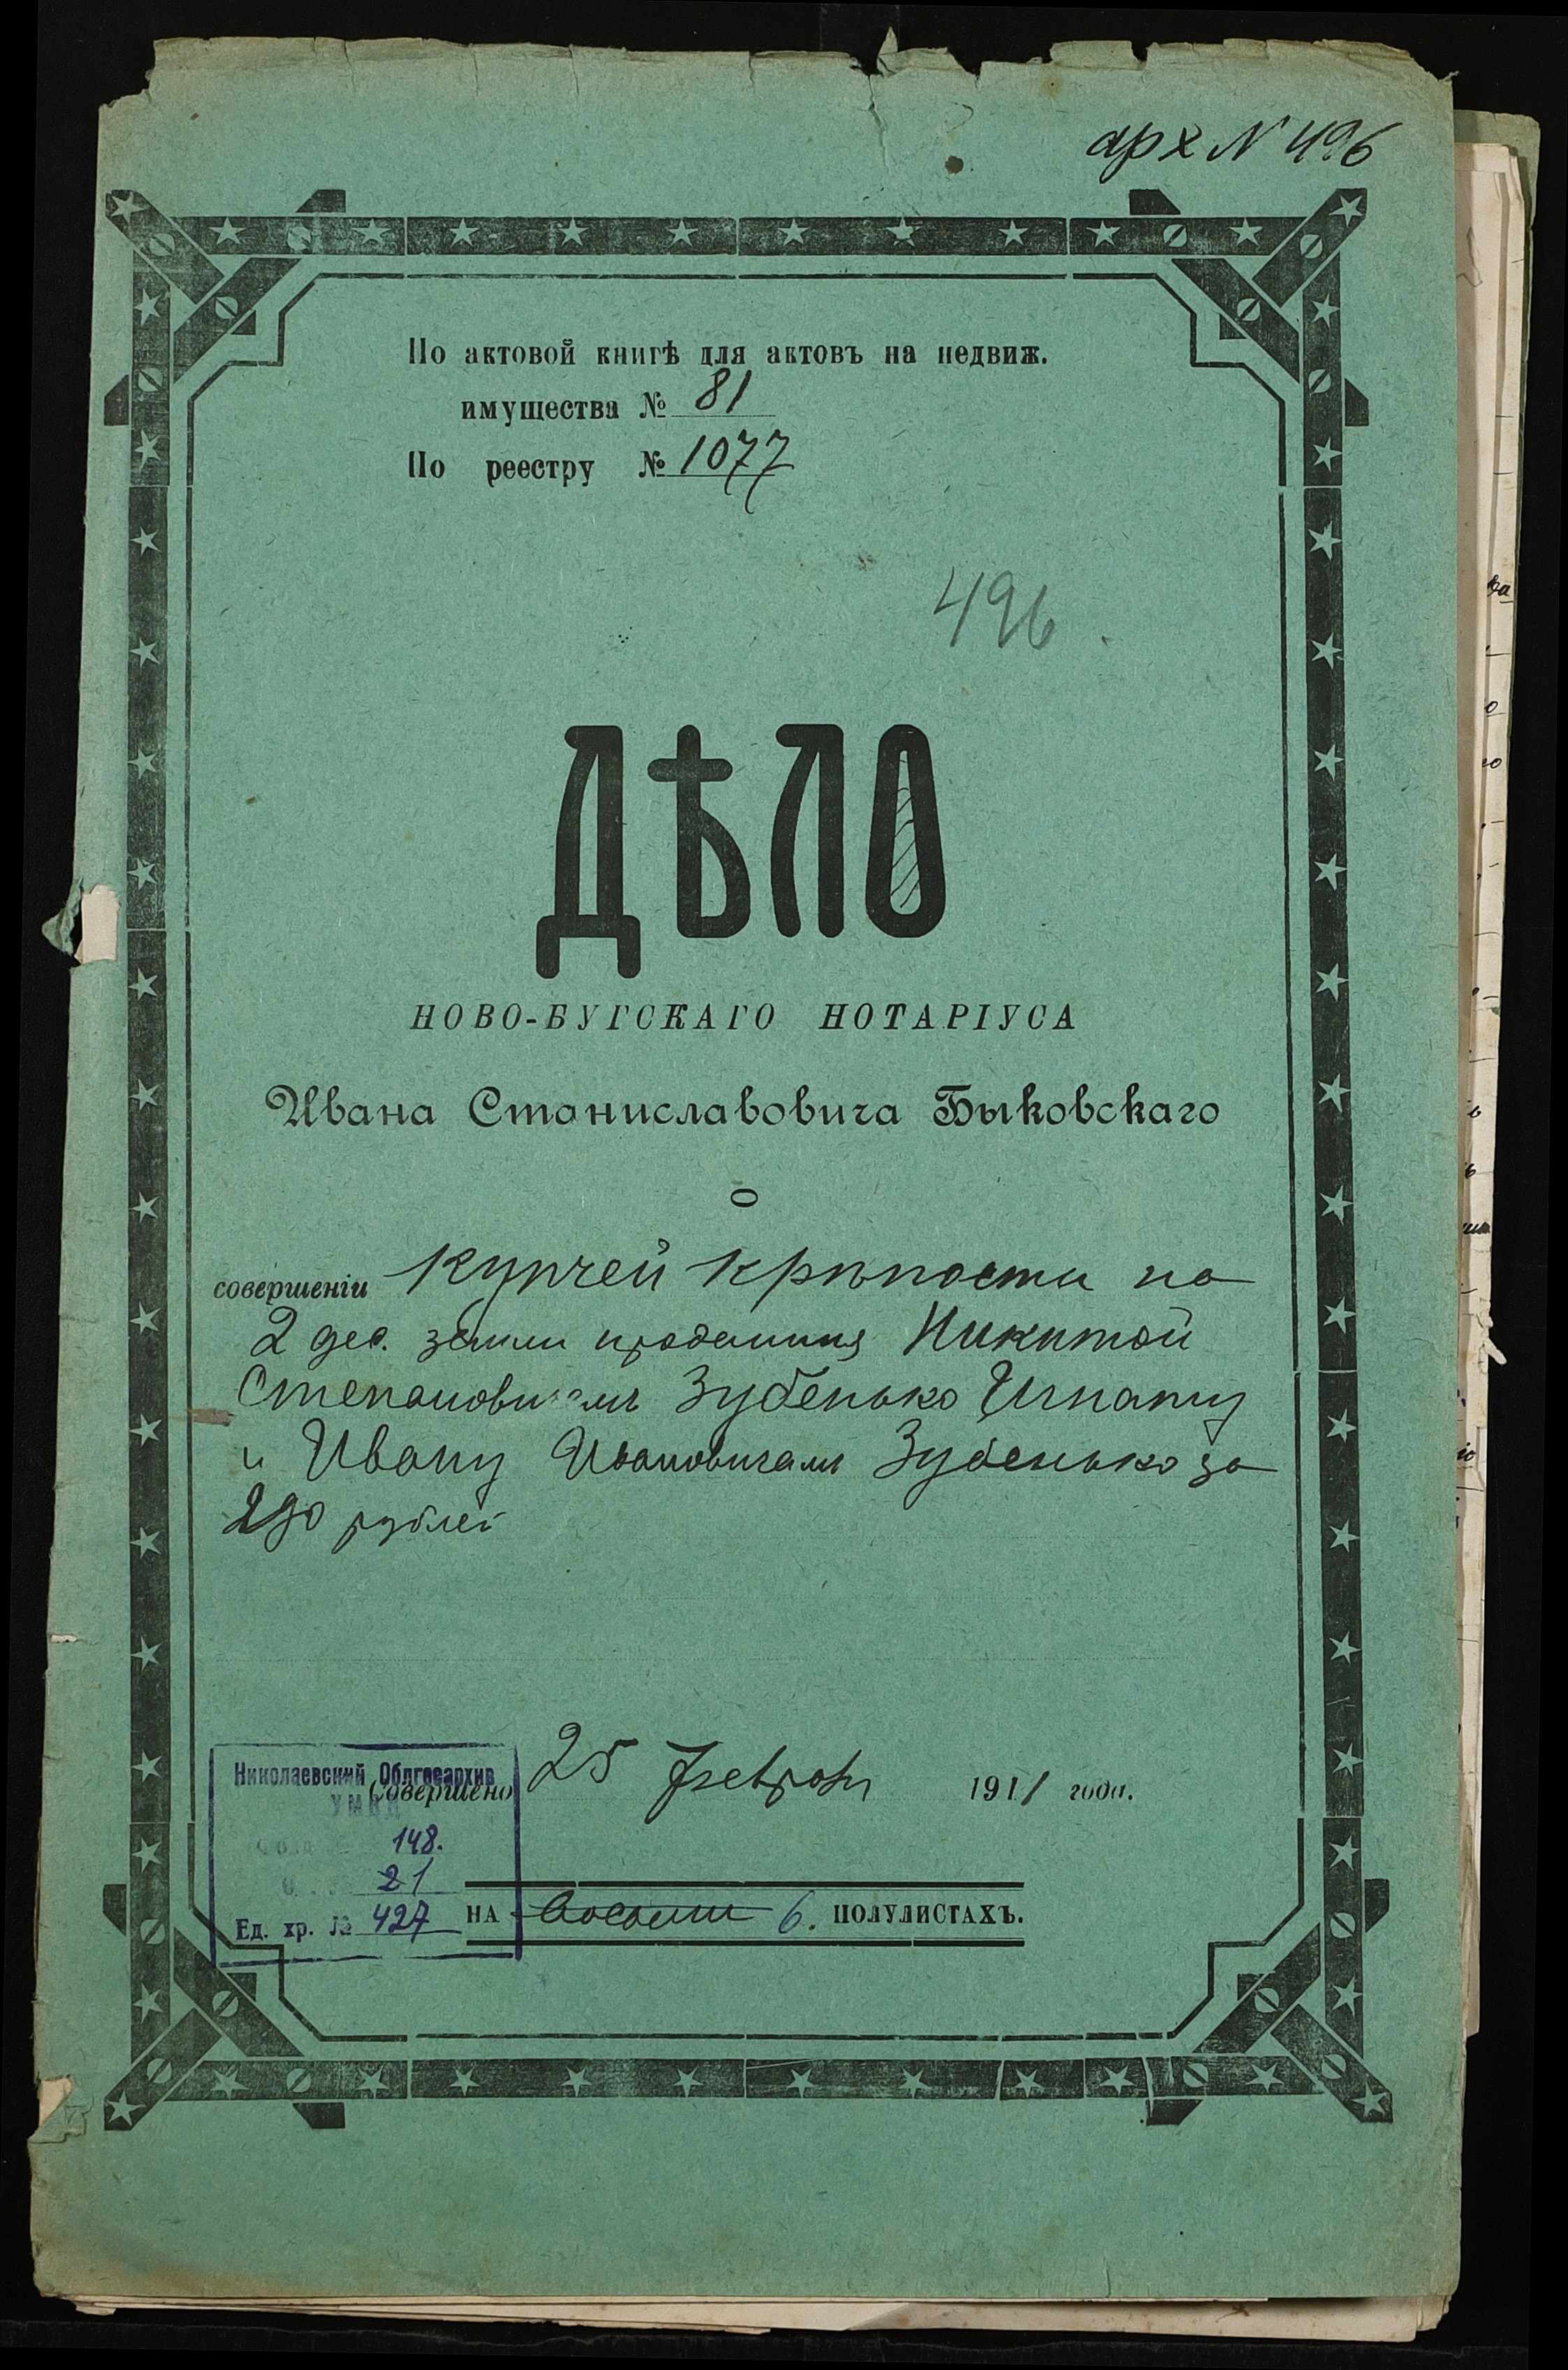 арх N 496
По актовой книгѣ для актовъ на недвиж.
имущества № 81
По реестру № 1077
496.
ДѢЛО
НОВО-БУГСКАГО НОТАРІУСА
Ивана Станиславовича Быковскаго
о
совершеніи купчей крѣпости на
2 дес. земли проданныя Никитой
Степановичемъ Зубенько Игнату
и Ивану Ивановичамъ Зубенько за
290 рублей
Николаевский Облгосархив
УМВД
Совершено 25 Февраля 1911 года.
148.
21
Ед. хр. № 427
НА восьми 6. ПОЛУЛИСТАХЪ.